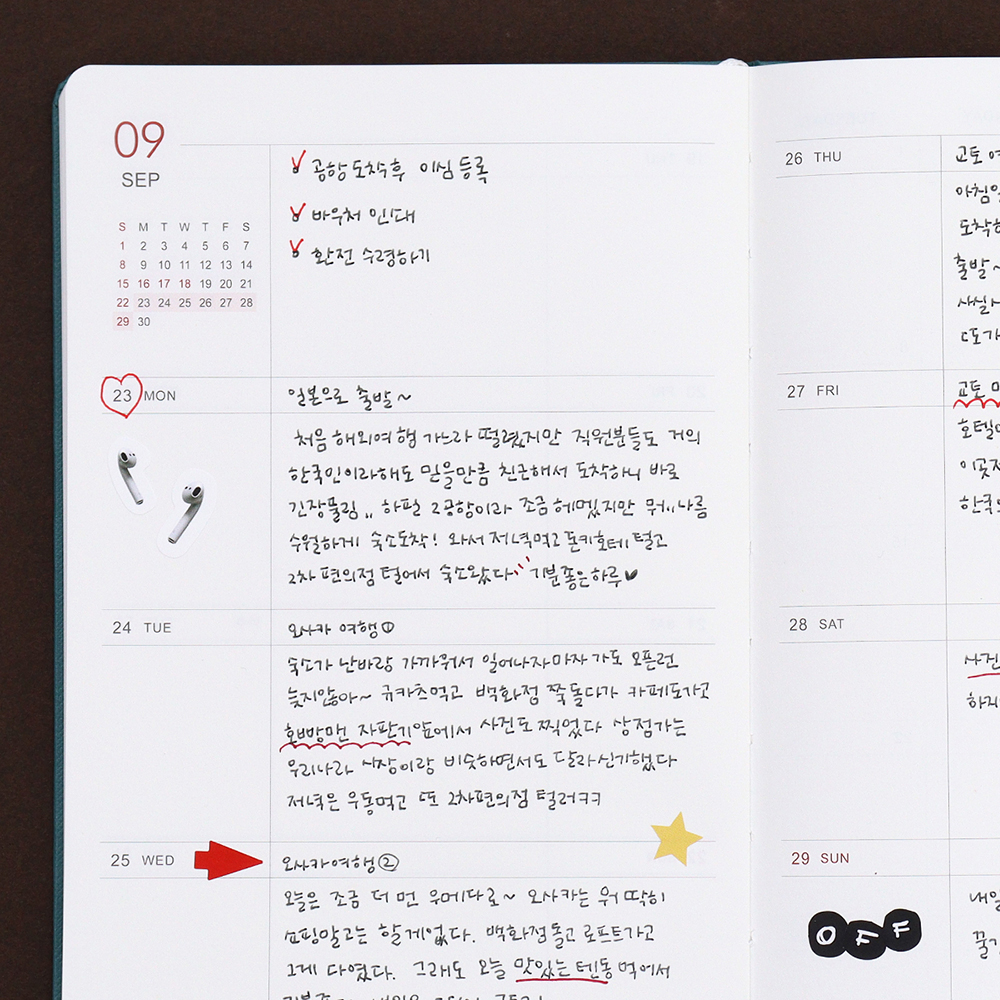 09
SEP
S M T W T F S
1 2 3 4 5 6 7
8 9 10 11 12 13 14
15 16 17 18 19 20 21
22 23 24 25 26 27 28
29 30
공항 도착 후 이심 등록
바우처 인쇄
환전 수령하기
23 MON
일본으로 출발~
처음 해외여행 가느라 떨렸지만 직원분들도 거의
한국인이라해도 믿을만큼 친근해서 도착하니 바로
긴장풀림,, 하필 2공항이라 조금 헤멨지만 뭐.. 나름
수월하게 숙소도착! 와서 저녁먹고 돈키호테 털고
2차 편의점 털어서 숙소왔다 기분좋은하루♥
24 TUE
오사카 여행①
숙소가 난바랑 가까워서 일어나자마자 가도 오픈런
늦지않아~ 규카츠먹고 백화점 쭉 돌다가 카페도가고
호빵맨 자판기앞에서 사진도 찍었다 상점가는
우리나라 시장이랑 비슷하면서도 달라 신기했다
저녁은 우동먹고 또 2차편의점 털러ㅋㅋ
25 WED
오사카여행②
오늘은 조금 더 먼 우메다로~ 오사카는 뭐 딱히
쇼핑말고는 할게없다. 백화점돌고 로프트가고
그게 다였다. 그래도 오늘 맛있는 텐동 먹어서
26 THU
교토 여
아침일
도착하
출발~
사실
또가
27 FRI
교토
호텔
이곳저
한국
28 SAT
사진
하지
29 SUN
내일
꿀